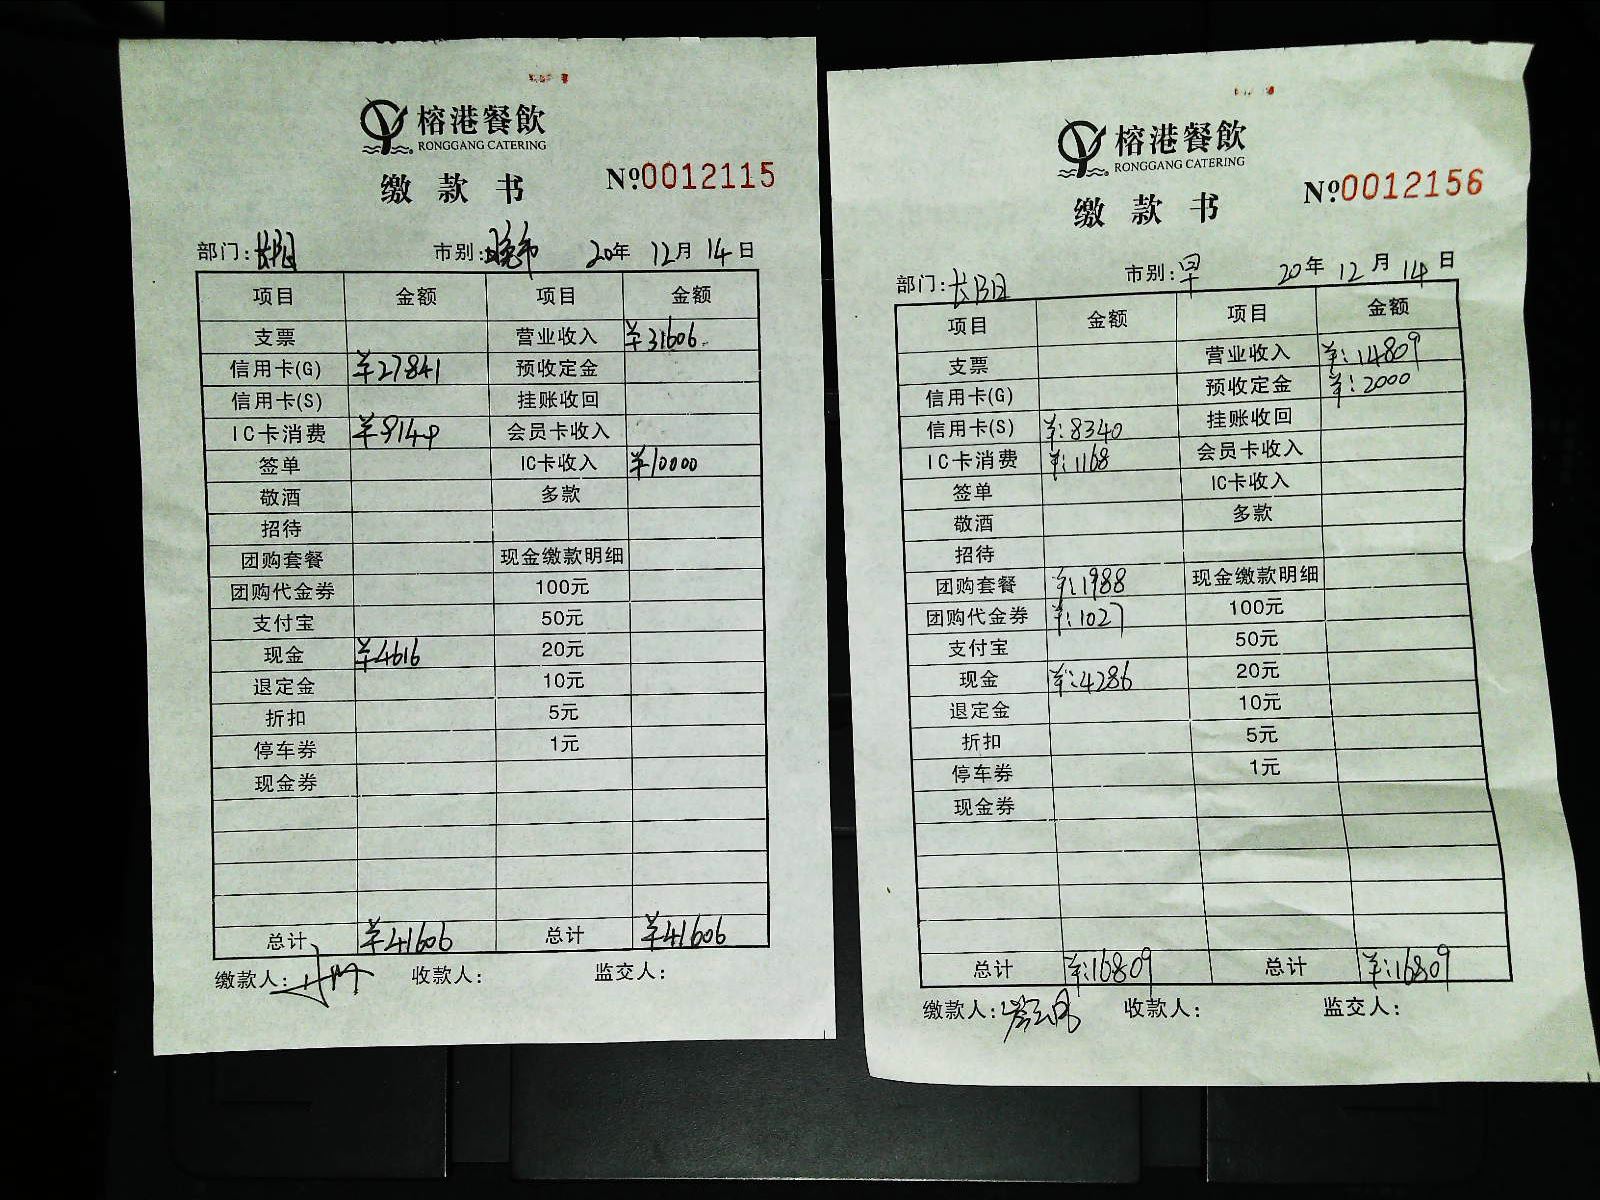 榕港餐飲
RONGGANG CATERING
缴款书 №0012115
部门:长阳 市别:晚市 20年 12月 14日
项目 金额 项目 金额
支票 营业收入 ¥31606
信用卡(G) ¥27841 预收定金
信用卡(S) 挂账收回
IC卡消费 ¥9149 会员卡收入
签单 IC卡收入 ¥10000
敬酒 多款
招待
团购套餐 现金缴款明细
团购代金券 100元
支付宝 50元
现金 ¥4616 20元
退定金 10元
折扣 5元
停车券 1元
现金券
总计 ¥41606 总计 ¥41606
缴款人: 收款人: 监交人:
榕港餐飲
RONGGANG CATERING
缴款书 №0012156
部门:长阳 市别:早 20年 12月 14日
项目 金额 项目 金额
支票 营业收入 ¥:14809
信用卡(G) 预收定金 ¥:2000
信用卡(S) ¥:8340 挂账收回
IC卡消费 ¥:1168 会员卡收入
签单 IC卡收入
敬酒 多款
招待
团购套餐 ¥:1988 现金缴款明细
团购代金券 ¥:1027 100元
支付宝 50元
现金 ¥:4286 20元
退定金 10元
折扣 5元
停车券 1元
现金券
总计 ¥:16809 总计 ¥:16809
缴款人: 收款人: 监交人: